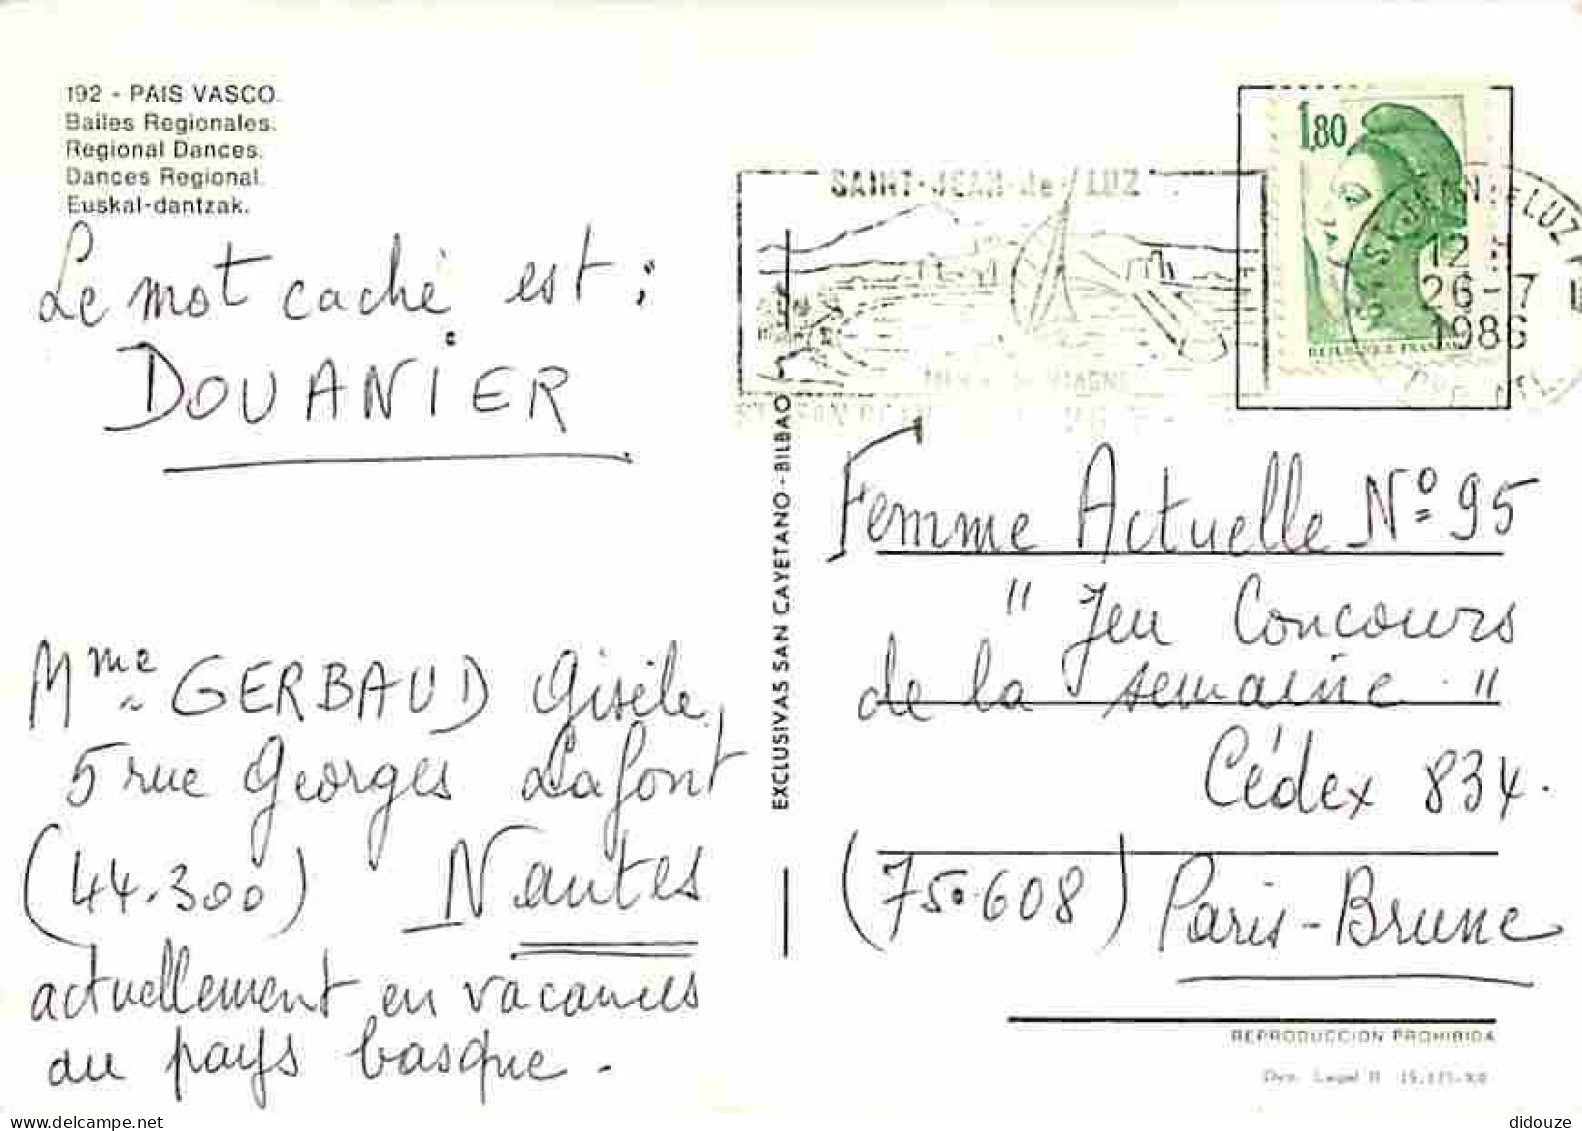 192 - PAIS VASCO.
Bailes Regionales.
Regional Dances.
Dances Regional.
Euskal-dantzak.
Le mot caché est :
DOUANIER
Mme GERBAUD Gisèle
5 rue Georges Lafont
(44.300) Nantes
actuellement en vacances
au pays basque.
EXCLUSIVAS SAN CAYETANO - BILBAO
SAINT-JEAN-de-LUZ
1,80
12
26-7
1986
Femme Actuelle N° 95
" Jeu Concours
de la semaine "
Cédex 834.
(75.608) Paris-Brune
REPRODUCCION PROHIBIDA
www.delcampe.net
didouze